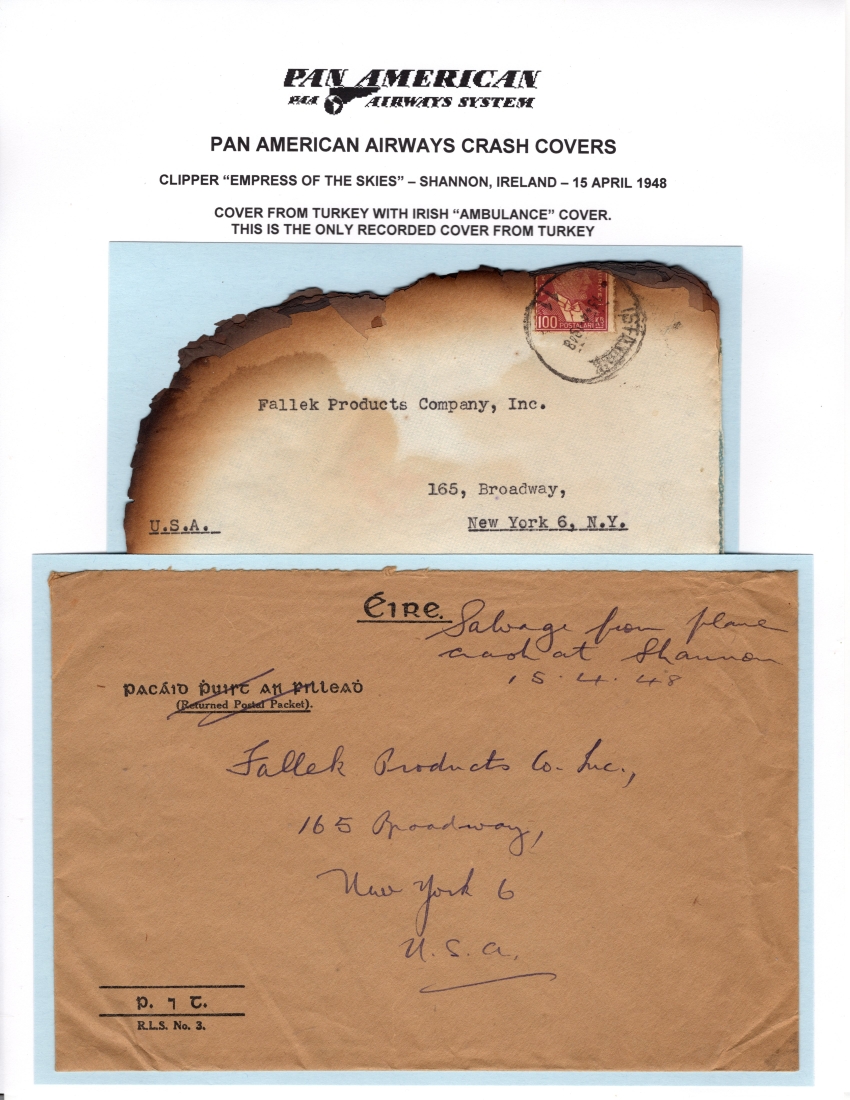 PAN AMERICAN
PAA AIRWAYS SYSTEM
PAN AMERICAN AIRWAYS CRASH COVERS
CLIPPER “EMPRESS OF THE SKIES” – SHANNON, IRELAND – 15 APRIL 1948
COVER FROM TURKEY WITH IRISH “AMBULANCE” COVER.
THIS IS THE ONLY RECORDED COVER FROM TURKEY
100 POSTALARI
Fallek Products Company, Inc.
165, Broadway,
U.S.A. New York 6, N.Y.
Éire.
Salvage from plane
crash at Shannon
15.4.48
pacáid ṗuirt an fillead
(Returned Postal Packet).
Fallek Products Co. Inc.,
165 Broadway,
New York 6
U.S.A.
p. ⁊ t.
R.L.S. No. 3.